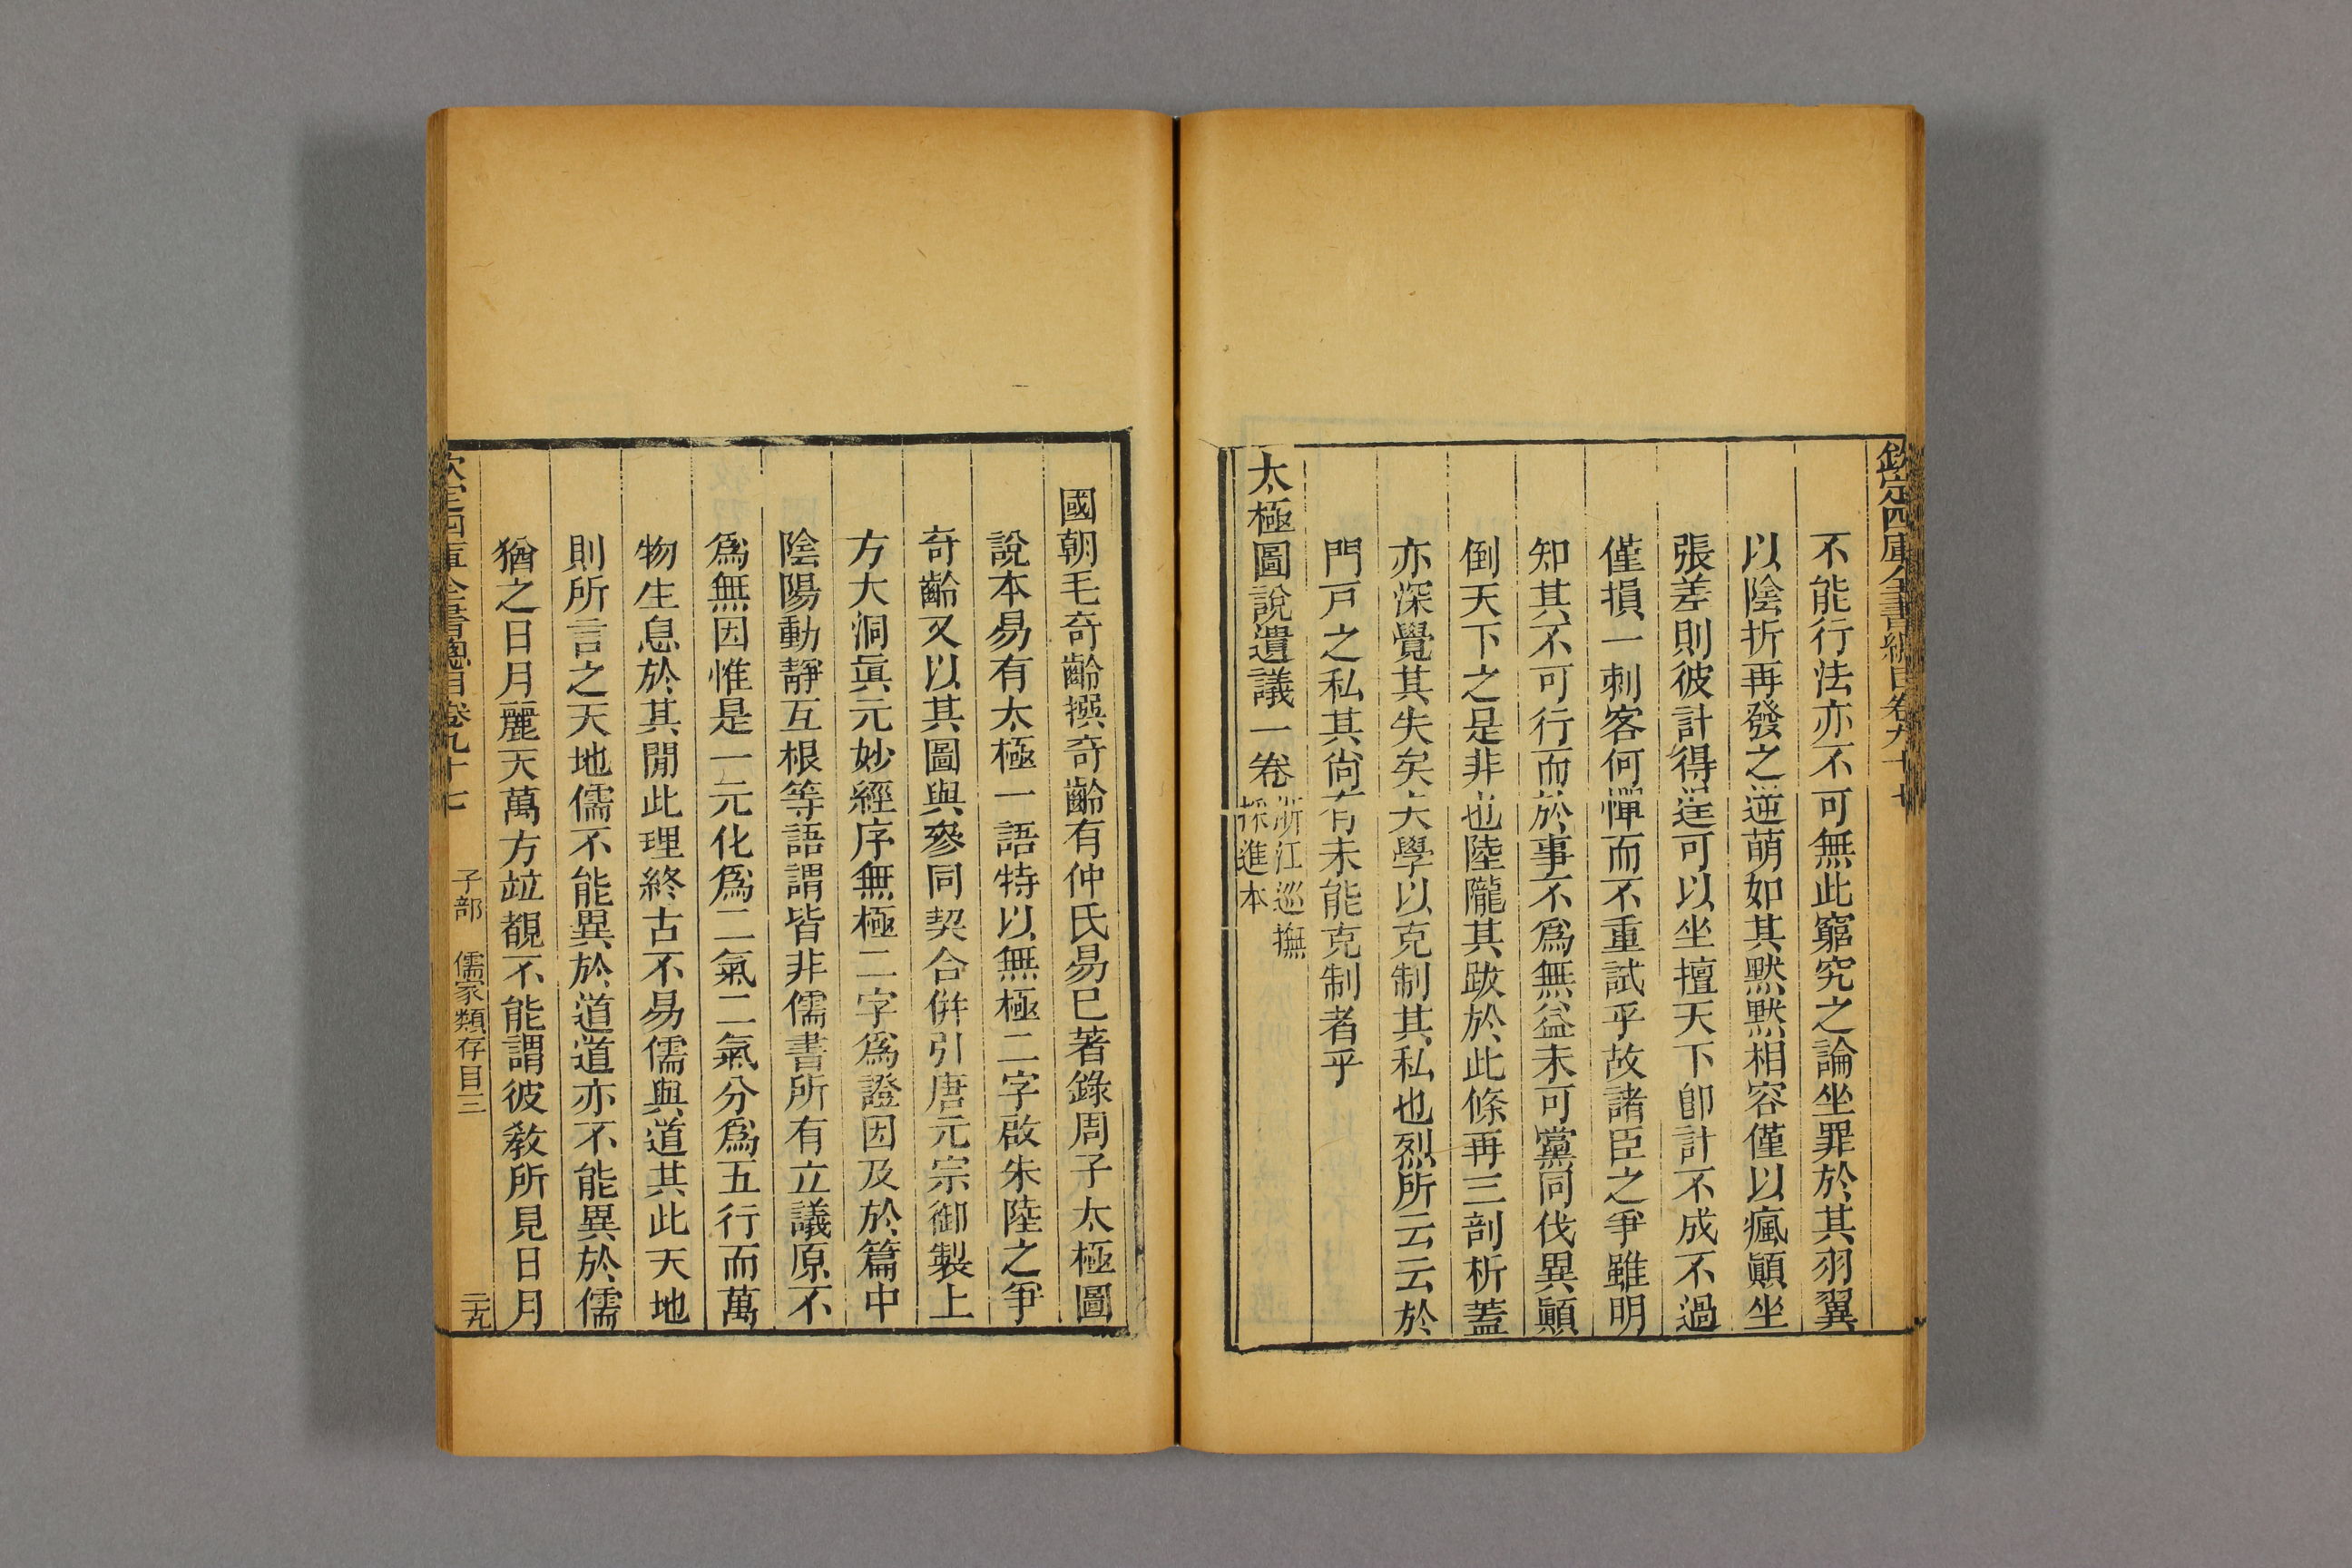 欽定四庫全書總目卷九十七
不能行法亦不可無此窮究之論坐罪於其羽翼
以陰折再發之逆萌如其默默相容僅以瘋顚坐
張差則彼計得逞可以坐擅天下卽計不成不過
僅損一刺客何憚而不重試乎故諸臣之爭雖明
知其不可行而於事不爲無益未可黨同伐異顚
倒天下之是非也陸隴其跋於此條再三剖析蓋
亦深覺其失矣夫學以克制其私也烈所云云於
門戸之私其尙有未能克制者乎
太極圖說遺議一卷浙江巡撫採進本
國朝毛奇齡撰奇齡有仲氏易已著錄周子太極圖
說本易有太極一語特以無極二字啟朱陸之爭
奇齡又以其圖與參同契合併引唐元宗御製上
方大洞眞元妙經序無極二字爲證因及於篇中
陰陽動靜互根等語謂皆非儒書所有立議原不
爲無因惟是一元化爲二氣二氣分爲五行而萬
物生息於其閒此理終古不易儒與道其此天地
則所言之天地儒不能異於道道亦不能異於儒
猶之日月麗天萬方竝覩不能謂彼敎所見日月
欽定四庫全書總目卷九十七 子部 儒家類存目三 二九